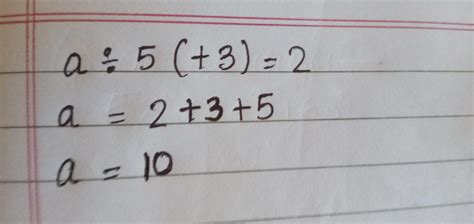 a ÷ 5 (+3) = 2
a = 2+3+5
a = 10